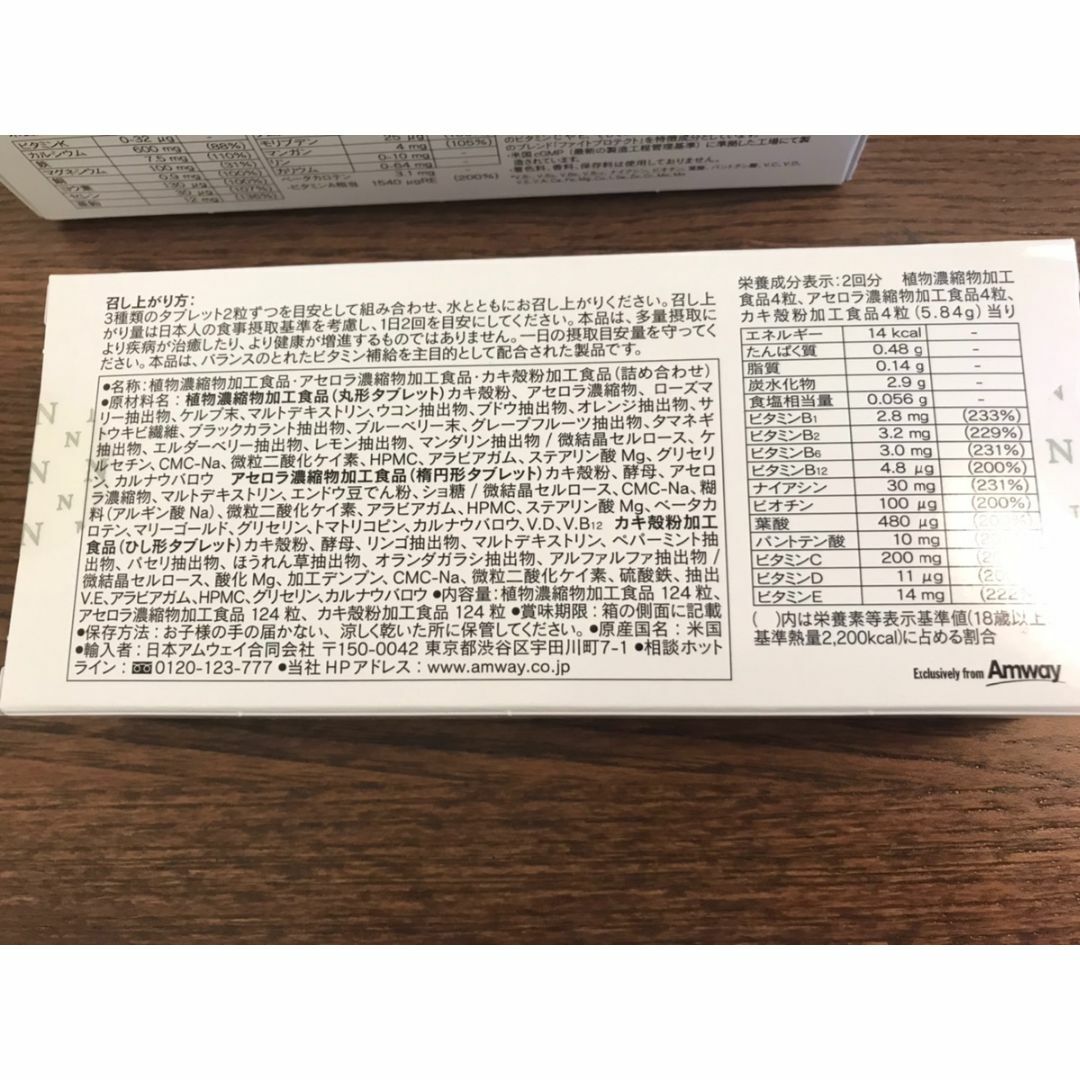 ビタミンK 0-32 μg -
カルシウム 600 mg (88%)
鉄 7.5 mg (110%)
マグネシウム 100 mg (31%)
銅 0.9 mg (100%)
130 μg (100%)
30 μg
亜鉛 12 mg (136%)
モリブデン 25 μg
マンガン 4 mg (105%)
リン 0-10 mg -
カリウム 0-64 mg -
ベータカロテン 3.1 mg -
-ビタミンA相当 1540 μgRE (200%)
のブレンド「ファイトプロテクト」を特徴成分としています。
・米国cGMP(最新の製造工程管理基準)に準拠した工場にて製
造されています。
・着色料、香料、保存料は使用しておりません。
召し上がり方:
3種類のタブレット2粒ずつを目安として組み合わせ、水とともにお召し上がりください。召し上
がり量は日本人の食事摂取基準を考慮し、1日2回を目安にしてください。本品は、多量摂取に
より疾病が治癒したり、より健康が増進するものではありません。一日の摂取目安量を守ってく
ださい。本品は、バランスのとれたビタミン補給を主目的として配合された製品です。
●名称:植物濃縮物加工食品・アセロラ濃縮物加工食品・カキ殻粉加工食品(詰め合わせ)
●原材料名:植物濃縮物加工食品(丸形タブレット)カキ殻粉、アセロラ濃縮物、ローズマ
リー抽出物、ケルプ末、マルトデキストリン、ウコン抽出物、ブドウ抽出物、オレンジ抽出物、サ
トウキビ繊維、ブラックカラント抽出物、ブルーベリー末、グレープフルーツ抽出物、タマネギ
抽出物、エルダーベリー抽出物、レモン抽出物、マンダリン抽出物/微結晶セルロース、ケ
ルセチン、CMC-Na、微粒二酸化ケイ素、HPMC、アラビアガム、ステアリン酸Mg、グリセリ
ン、カルナウバロウ アセロラ濃縮物加工食品(楕円形タブレット)カキ殻粉、酵母、アセロ
ラ濃縮物、マルトデキストリン、エンドウ豆でん粉、ショ糖/微結晶セルロース、CMC-Na、糊
料(アルギン酸Na)、微粒二酸化ケイ素、アラビアガム、HPMC、ステアリン酸Mg、ベータカ
ロテン、マリーゴールド、グリセリン、トマトリコピン、カルナウバロウ、V.D、V.B12 カキ殻粉加工
食品(ひし形タブレット)カキ殻粉、酵母、リンゴ抽出物、マルトデキストリン、ペパーミント抽
出物、パセリ抽出物、ほうれん草抽出物、オランダガラシ抽出物、アルファルファ抽出物/
微結晶セルロース、酸化Mg、加工デンプン、CMC-Na、微粒二酸化ケイ素、硫酸鉄、抽出
V.E、アラビアガム、HPMC、グリセリン、カルナウバロウ ●内容量:植物濃縮物加工食品 124粒、
アセロラ濃縮物加工食品 124粒、カキ殻粉加工食品 124粒 ●賞味期限:箱の側面に記載
●保存方法:お子様の手の届かない、涼しく乾いた所に保管してください。●原産国名:米国
●輸入者:日本アムウェイ合同会社 〒150-0042 東京都渋谷区宇田川町7-1 ●相談ホット
ライン:0120-123-777 ●当社HPアドレス:www.amway.co.jp
栄養成分表示:2回分 植物濃縮物加工
食品4粒、アセロラ濃縮物加工食品4粒、
カキ殻粉加工食品4粒(5.84g)当り
エネルギー 14 kcal -
たんぱく質 0.48 g -
脂質 0.14 g -
炭水化物 2.9 g -
食塩相当量 0.056 g -
ビタミンB1 2.8 mg (233%)
ビタミンB2 3.2 mg (229%)
ビタミンB6 3.0 mg (231%)
ビタミンB12 4.8 μg (200%)
ナイアシン 30 mg (231%)
ビオチン 100 μg (200%)
葉酸 480 μg
パントテン酸 10 mg
ビタミンC 200 mg
ビタミンD 11 μg
ビタミンE 14 mg (222%)
( )内は栄養素等表示基準値(18歳以上、
基準熱量2,200kcal)に占める割合
Exclusively from Amway